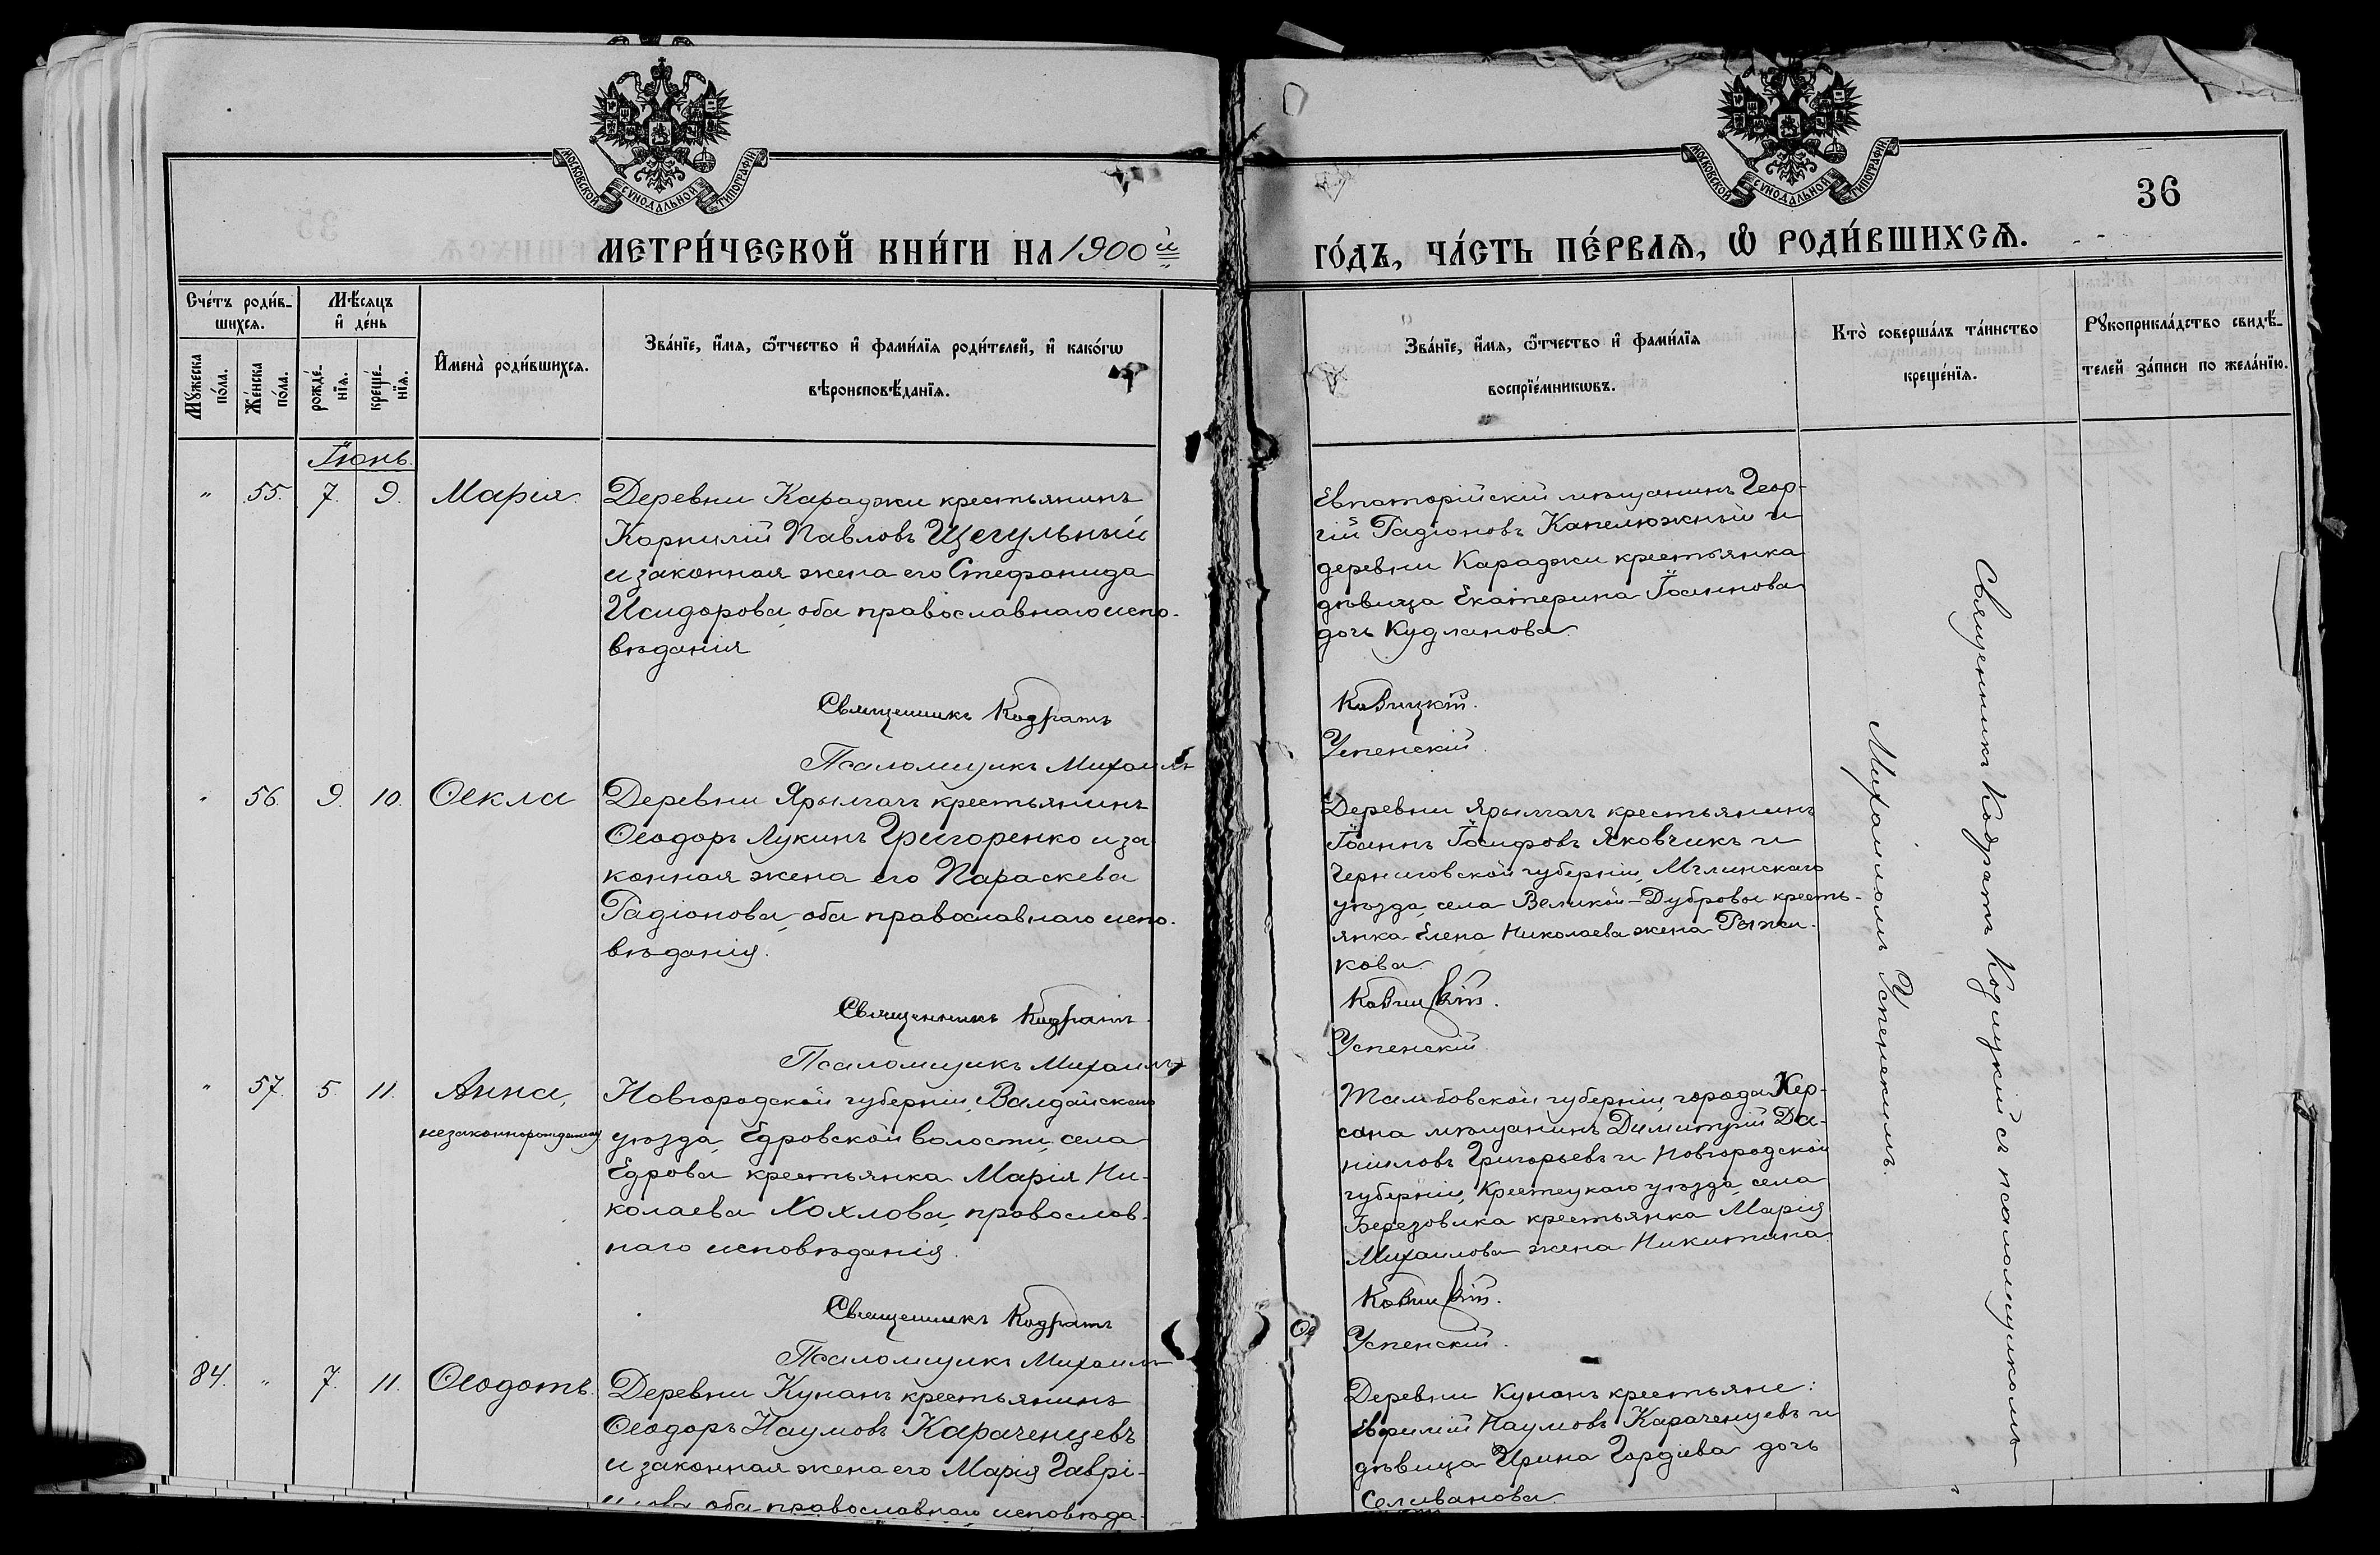 МОСКОВСКОЙ СУНОДАЛЬНОЙ ТИПОГРАФІИ
МОСКОВСКОЙ СУНОДАЛЬНОЙ ТИПОГРАФІИ
36
МЕТРИ́ЧЕСКОЙ КНИ́ГИ НА 1900й
ГО́ДЪ, ЧА́СТЬ ПЕ́РВАѦ, Ѡ РОДИ́ВШИХСѦ.
Сче́тъ роди́в-
шихсѧ.
Мꙋ́жеска
по́ла.
Же́нска
по́ла.
Мѣ́сѧцъ
и҆ де́нь
рожде́-
нїѧ.
креще́-
нїѧ.
И҆мена̀ роди́вшихсѧ.
Зва́нїе, и҆́мѧ, ѻ҆́тчество и҆ фами́лїѧ роди́телей, и҆ како́гѡ
вѣроисповѣ́данїѧ.
Зва́нїе, и҆́мѧ, ѻ҆́тчество и҆ фами́лїѧ
воспрїе́мникѡвъ.
Кто̀ соверша́лъ та́инство
креще́нїѧ.
Рꙋкоприкла́дство свидѣ́-
телей за́писи по жела́нїю.
Іюнь.
" 55. 7. 9. Марія.
Деревни Караджи крестьянинъ
Корнилій Павловъ Щегульный
и законная жена его Стефанида
Исидорова, оба православнаго испо-
вѣданія
Священникъ Кодратъ
Псаломщикъ Михаилъ
Евпаторійскій мѣщанинъ Геор-
гій Радіоновъ Капелюжный и
деревни Караджи крестьянка
дѣвица Екатерина Іоаннова
дочь Кудланова.
Успенскій.
" 56. 9. 10. Ѳекла
Деревни Ярылгачъ крестьянинъ
Ѳеодоръ Лукинъ Григоренко и за
конная жена его Параскева
Радіонова, оба православнаго испо-
вѣданія.
Священникъ Кодратъ
Псаломщикъ Михаилъ
Деревни Ярылгачъ крестьянинъ
Іоаннъ Іосифовъ Яковчикъ и
Черниговской губерніи, Мглинскаго
уѣзда, села Великой-Дубровы кресть-
янка Елена Николаева жена Рыжи-
кова.
Успенскій
" 57. 5. 11. Анна,
незаконнорожденная
Новгородской губерніи, Валдайскаго
уѣзда, Едровской волости, села
Едрова крестьянка Марія Ни-
колаева Хохлова, православ-
наго исповѣданія.
Священникъ Кодратъ
Псаломщикъ Михаилъ
Тамбовской губерніи, города Кер-
сана мѣщанинъ Димитрій Да-
ніиловъ Григорьевъ и Новгородской
губерніи, Крестецкаго уѣзда, села
Березовика крестьянка Марія
Михаилова жена Никитина
Успенскій.
84. " 7. 11. Ѳеодотъ.
Деревни Кунанъ крестьянинъ
Ѳеодоръ Наумовъ Караченцевъ
и законная жена его Марія Гаврі-
илова оба православнаго исповѣда-
Деревни Кунанъ крестьяне:
Евфимій Наумовъ Караченцевъ и
дѣвица Ирина Гордіева дочь
Селиванова
Священникъ Кодратъ Кодицкій съ псаломщикомъ
Михаиломъ Успенскимъ.